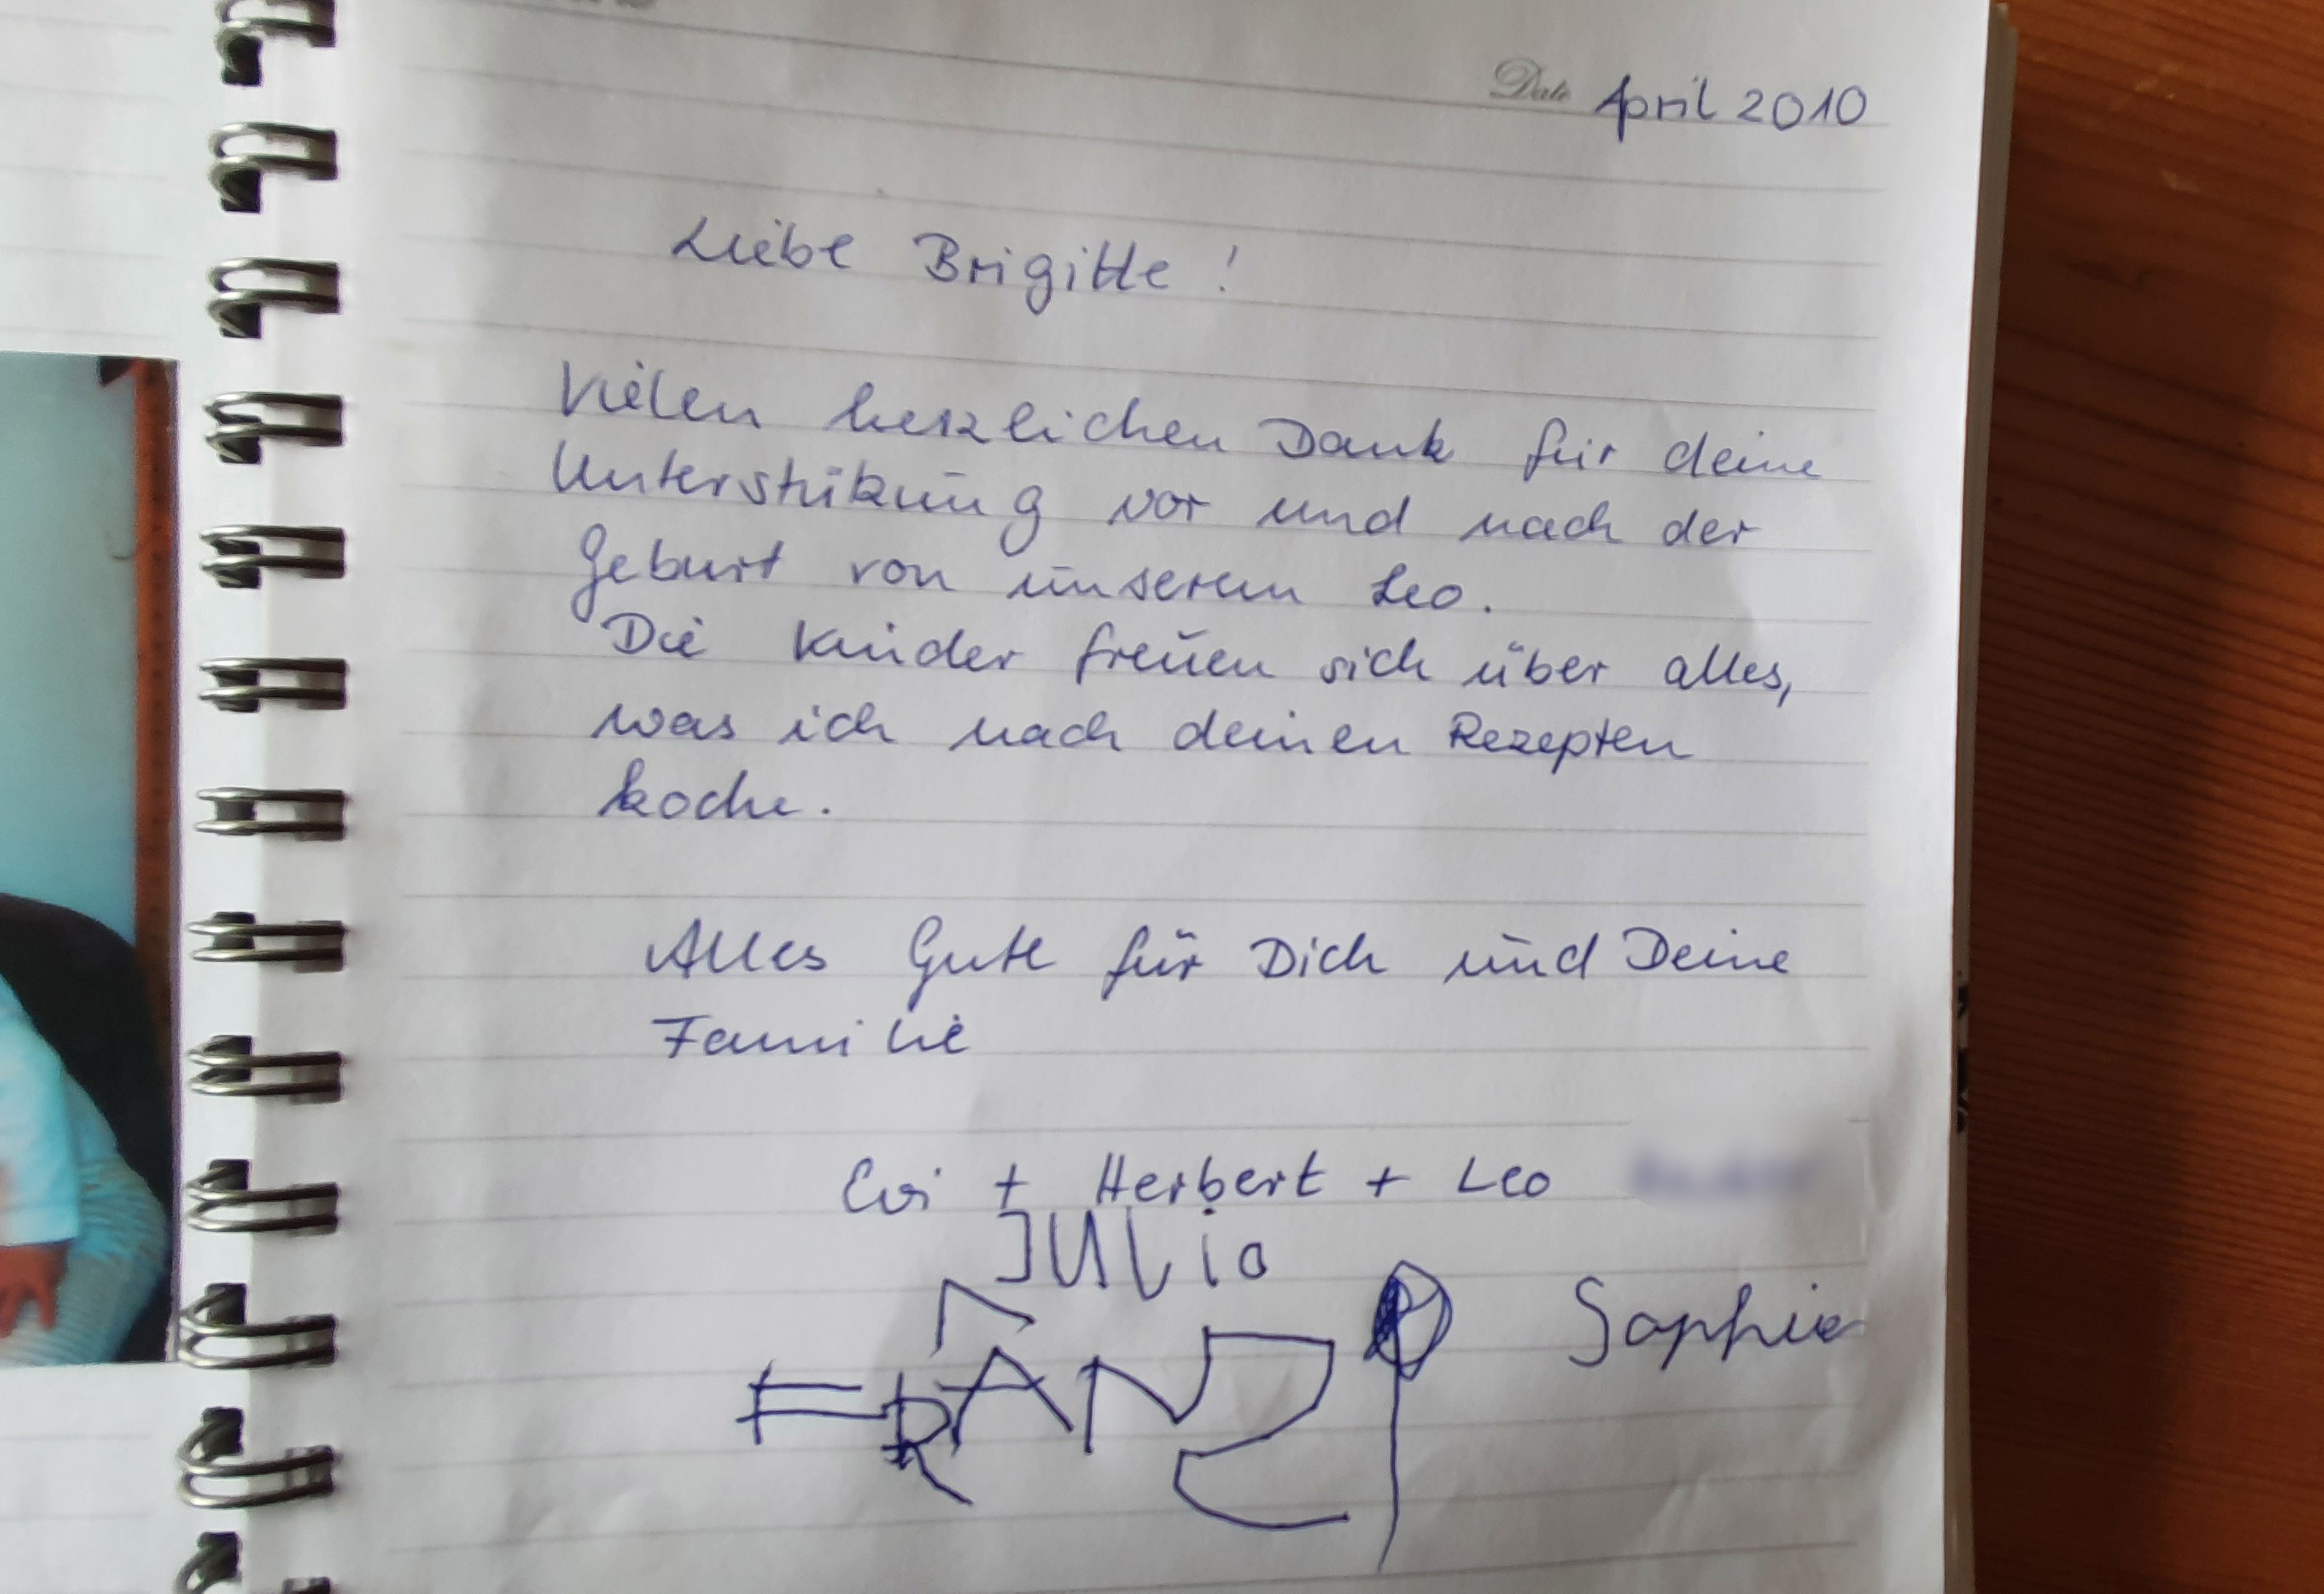 Date April 2010
Liebe Brigitte!
Vielen herzlichen Dank für deine
Unterstützung vor und nach der
Geburt von unserem Leo.
Die Kinder freuen sich über alles,
was ich nach deinen Rezepten
koche.
Alles Gute für Dich und Deine
Familie
Evi + Herbert + Leo
JULia
FRANZ
Sophie